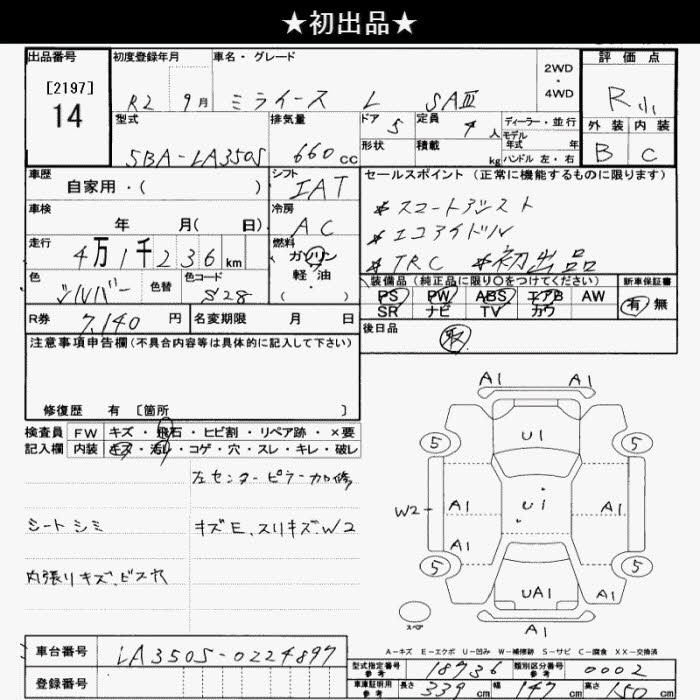 ★初出品★
出品番号 初度登録年月 車名・グレード 2WD・4WD 評価点
[2197] 14 R2 9月 ミライース L SAⅢ R小
型式 排気量 ドア 定員 ディーラー・並行 外装 内装
SBA-LA350S 660cc 5 4人 モデル年式 年 B C
形状 積載 kg ハンドル 左・右
車歴 シフト セールスポイント (正常に機能するものに限ります)
自家用・( ) IAT *スマートアシスト
車検 冷房 *エコアイドル
年 月( 日) AC *TRC *初出品
走行 燃料
4万1千236km ガソリン
軽油
( ・ )
装備品 (純正品に限り○をつけてください) 新車保証書
色 色替 色コード PS PW ABS エアB AW 有 無
シルバー S28 SR ナビ TV カワ
R券 7,140円 名変期限 月 日 後日品 取
注意事項申告欄(不具合内容等は具体的に記入して下さい)
修復歴 有 [箇所 ]
検査員 FW キズ・飛石・ヒビ割・リペア跡・×要
記入欄 内装 キズ・汚レ・コゲ・穴・スレ・キレ・破レ
左センターピラー加修
シートシミ キズE、スリキズ、W2
内張りキズ、ビス穴
A1 A1
5 U1 5
W2 A1 U1 A1
A1
5 UA1 5
A1
スペア A1
A-キズ E-エクボ U-凹み W-補修跡 S-サビ C-腐食 XX-交換済
車台番号 LA350S-0224897
型式指定番号 参考 18736 類別区分番号 参考 0002
登録番号
車庫証明用 参考 長さ 339cm 幅 147cm 高さ 150cm